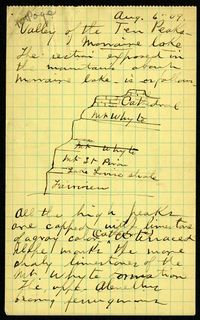 Aug. 6-09.
Valley of the Ten Peaks
Moraine Lake
The section exposed in
the mountains about
Moraine lake is as follows
Cathedral
Mt Whyte
Mt Whyte
Mt St Piran
Lake Louise shale
Fairview
All the high peaks
are capped with limestone
of a gray color
the more
shaly limestones of the
Mt. Whyte formation
The upper
ferruginous